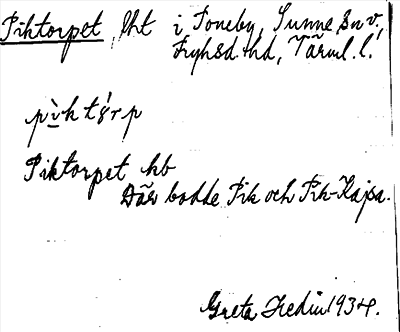 Piktorpet, lht i Toneby, Sunne sn v,
Fryksd. hd, Värml. l.
pìktórp
Piktorpet hb
Där bodde Pik och Pik-Kajsa.
Greta Hedin 1934.